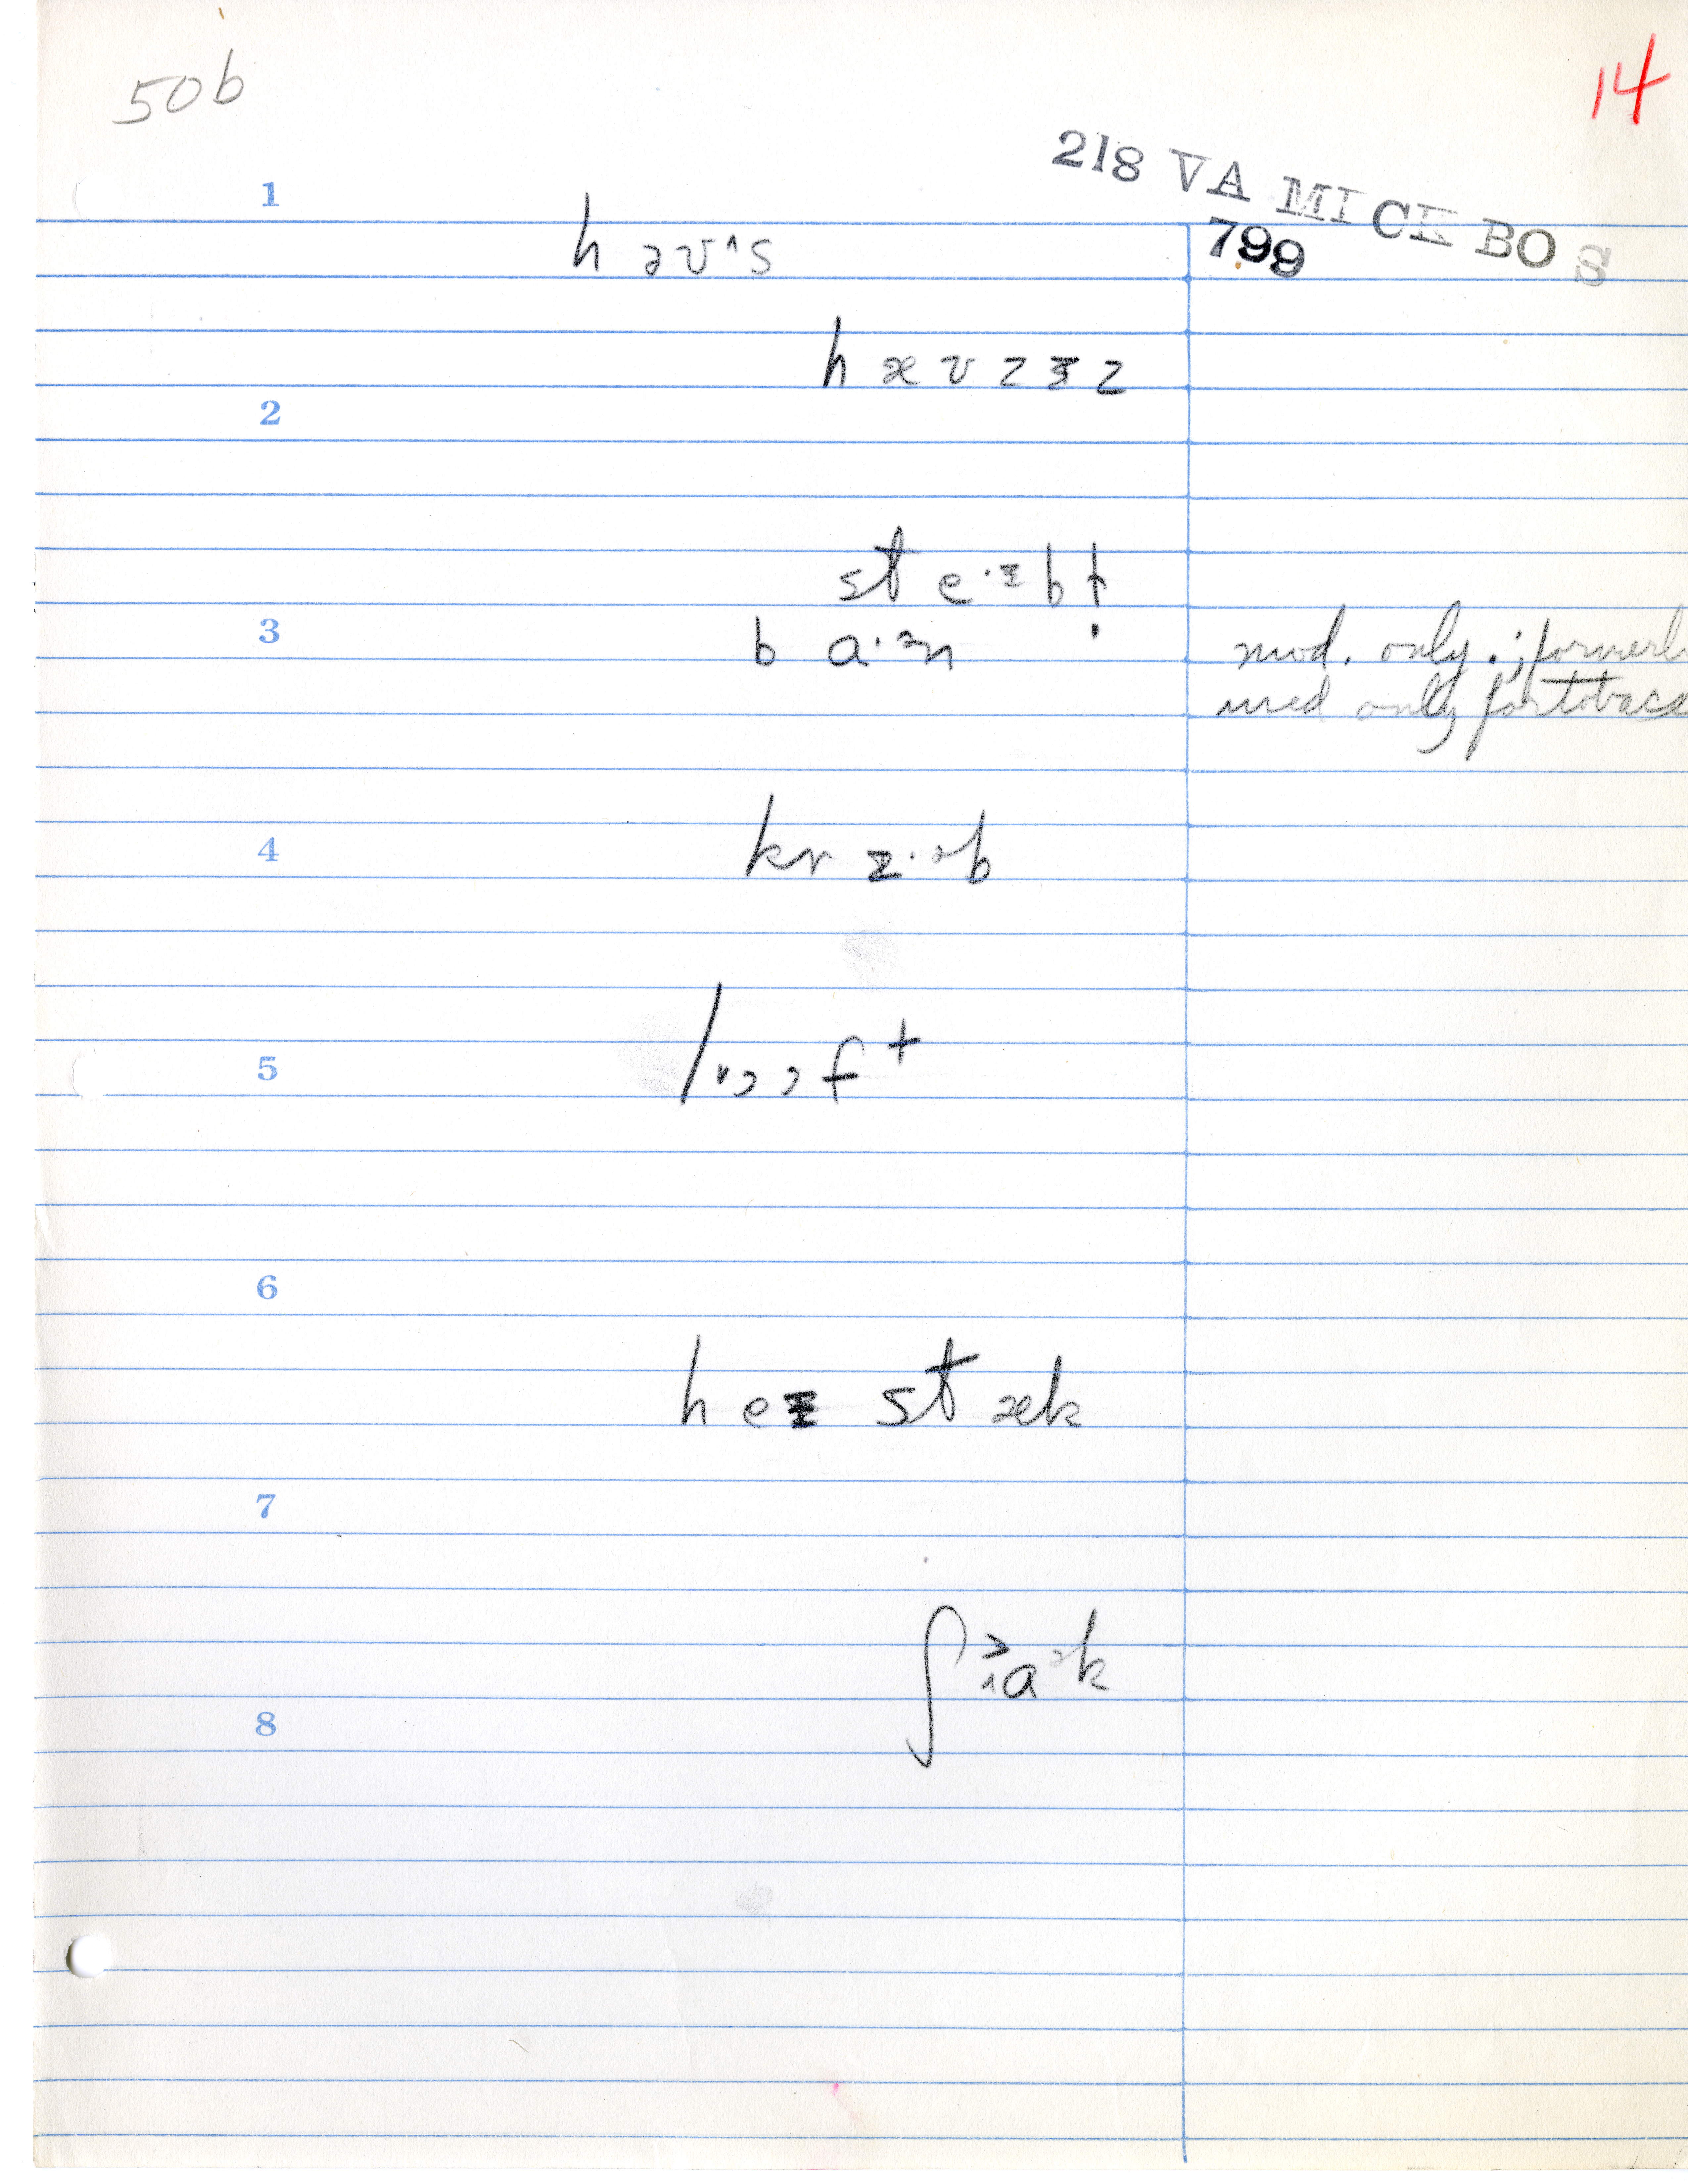 50b
14
218 VA MICK BOS
799
1
h əʊ^s
h æ v z ɪ z
2
st e·ɪ b ɫ
3
b a·ᵊn
mod. only.; formerl
used only for tobacc
4
kr ɪ·ᵊb
5
6
h eɪ st æk
7
8